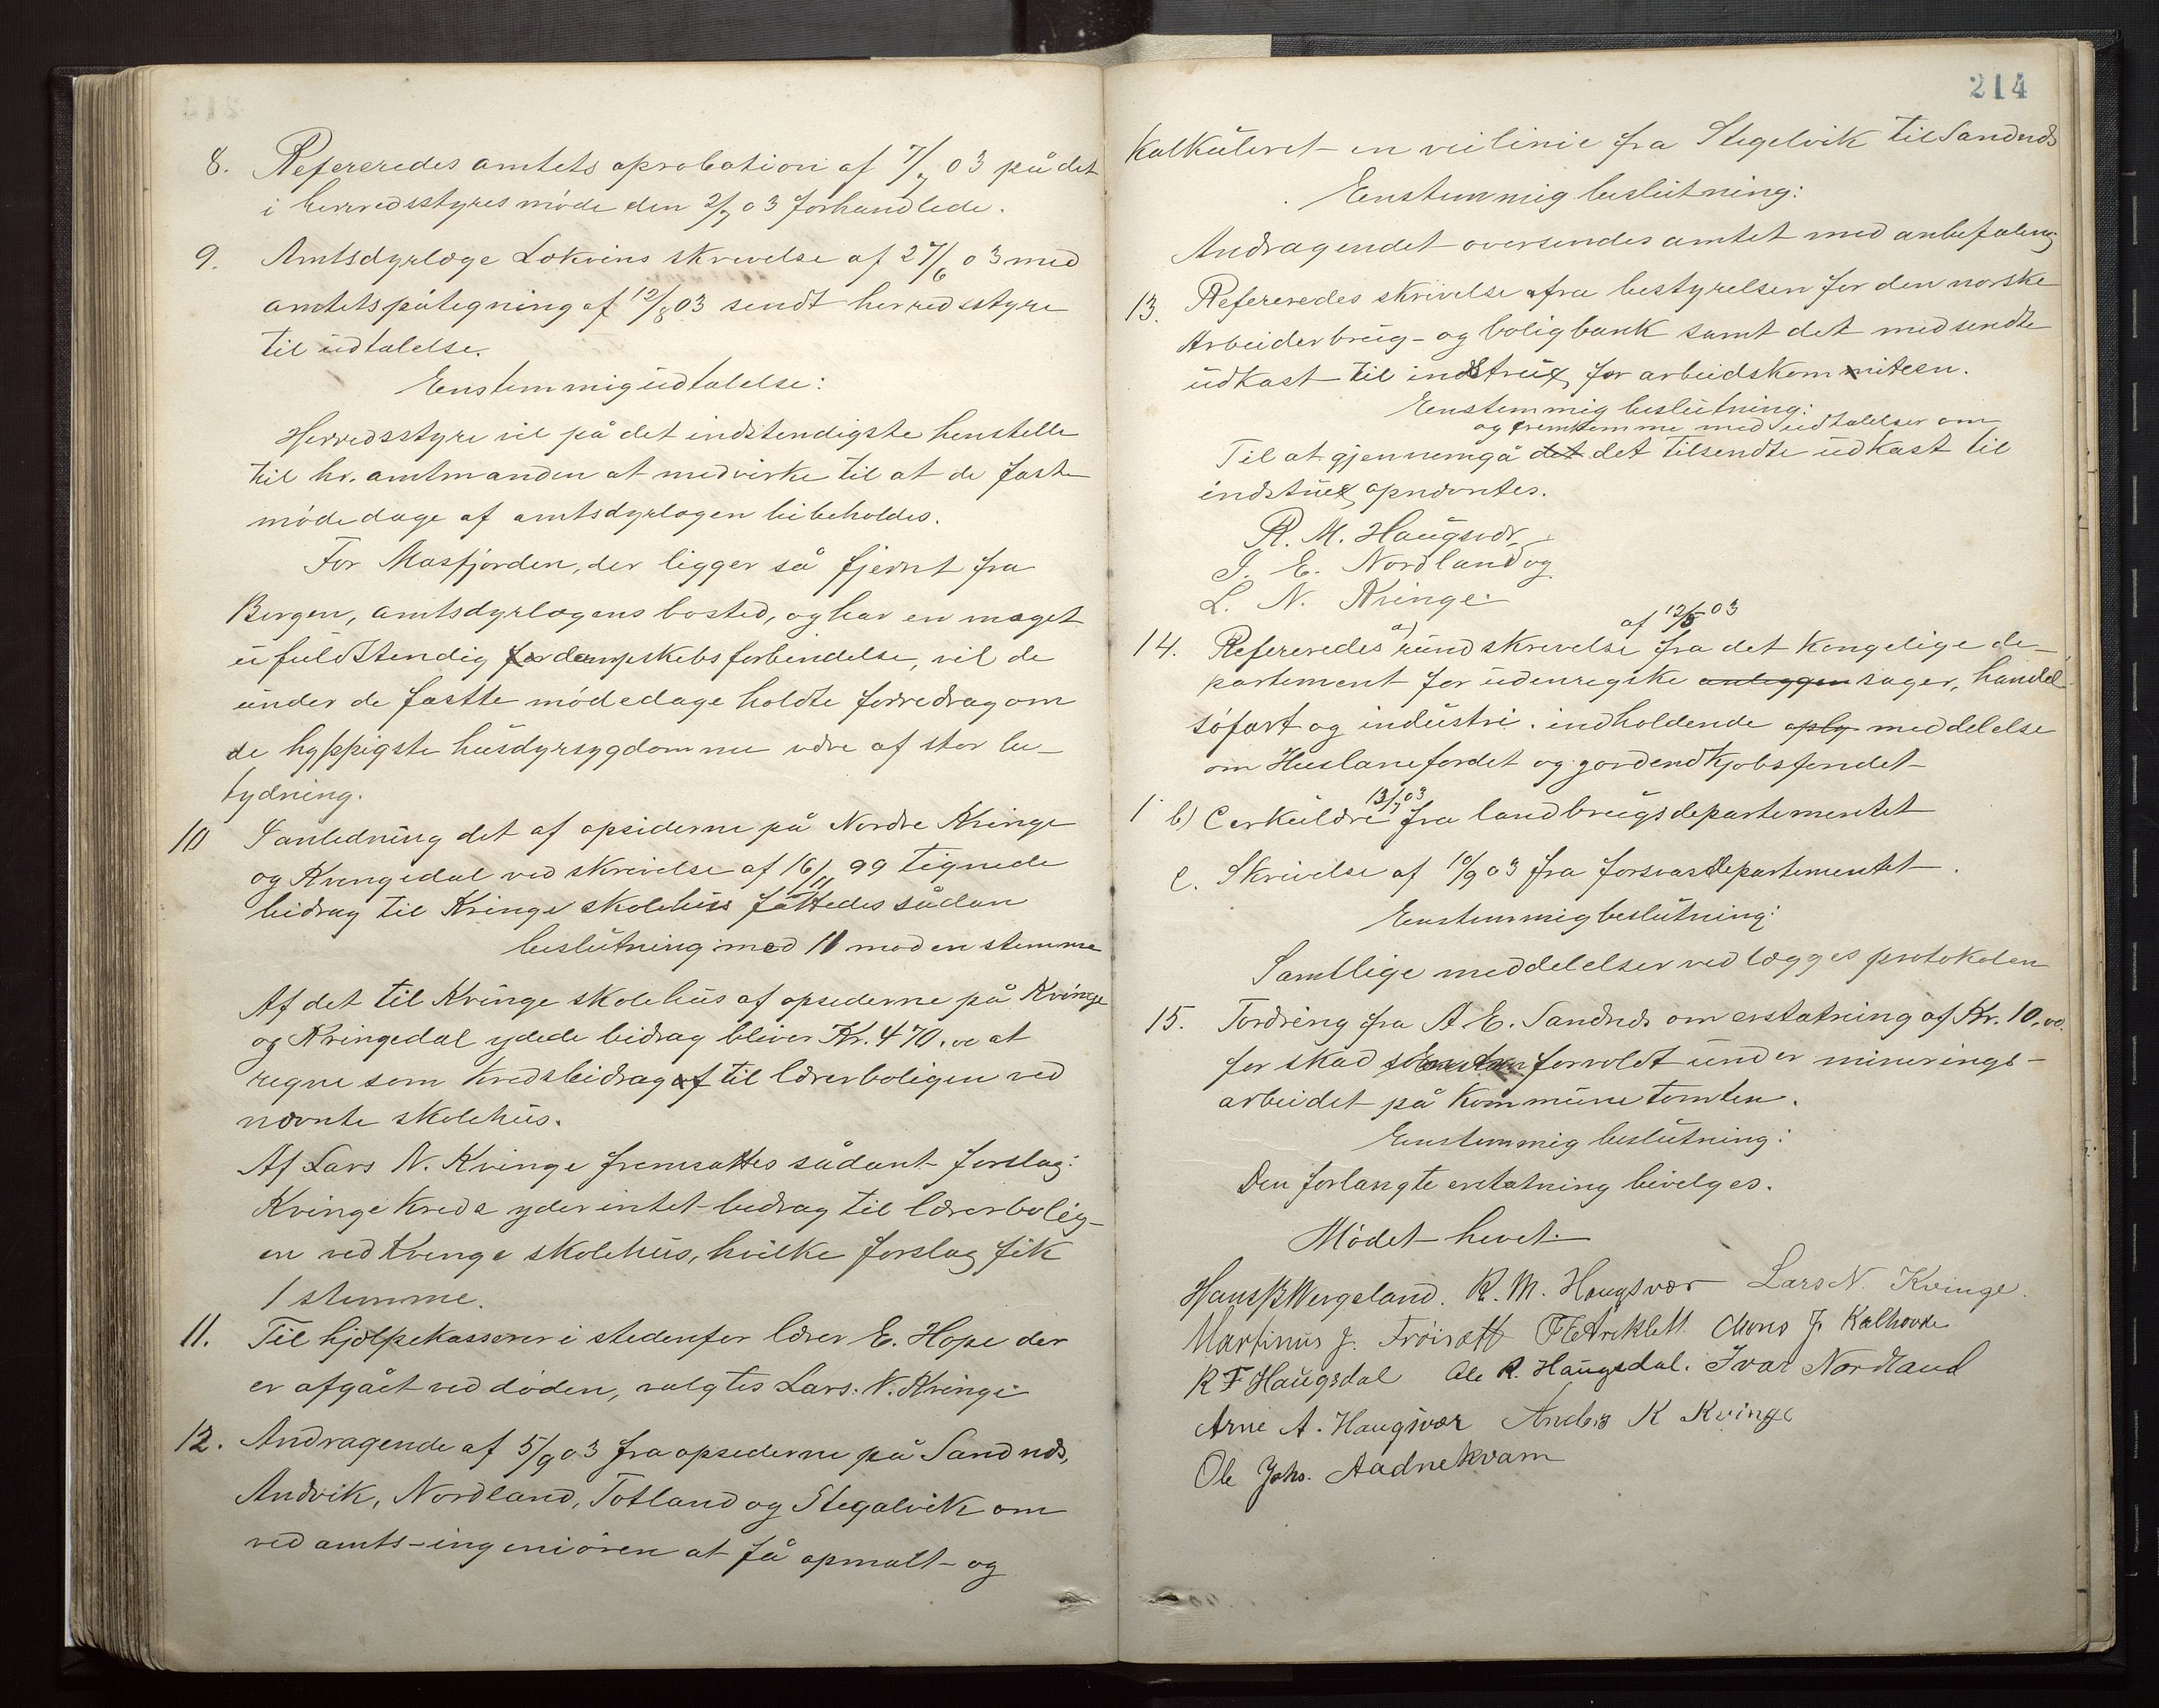 8. Refereredes amtets aprobation af 7/7 03 på det
i herredsstyres møde den 2/7 03 forhandlede.
9. Amtsdyrlæge Løkvins skrivelse af 27/6 03 med
amtets påtegning af 12/8 03 sendt herredsstyre
til udtalelse.
Eenstemmig udtalelse:
Herredsstyre vil på det indstendigste henstelle
til hr. amtmanden at medvirke til at de faste
mødedage af amtsdyrlægen bibeholdes.
For Masfjorden, der ligger så fjernt fra
Bergen, amtsdyrlægens bosted, og har en meget
ufuldstendig dampskebsforbindelse, vil de
under de fastte mødedage holdte forredrag om
de hyppigste husdyrsygdomme være af stor be-
tydning.
10 I anledning det af opsiderne på Nordre Kvinge
og Kvingedal ved skrivelse af 16/11 99 tegnede
bidrag til Kvinge skolehus fattedes sådan
beslutning med 11 mod en stemme
Af det til Kvinge skolehus af opsederne på Kvinge
og Kvingedal ydede bidrag bliver Kr. 470.00 at
regne som kredsbidrag til lærerboligen ved
nævnte skolehus.
Af Lars N. Kvinge fremsattes sådant forslag:
Kvinge kreds yder intet bedrag til lærerbolig-
en ved Kvinge skolehus, hvilke forslag fik
1 stemme.
11. Til hjælpekasserer i stedenfor lærer E. Hope der
er afgået ved døden, valgtes Lars. N. Kvinge
12. Andragende af 5/9 03 fra opsederne på Sandnæs,
Andvik, Nordland, Totland og Stegalvik om
ved amts-ingeniøren at få opmalt og
214
kalkuleret en veilinie fra Stegelvik til Sandnæs
Eenstemmig beslutning:
Andragendet oversendes amtet med anbefaling
13. Refereredes skrivelse fra bestyrelsen for den norske
Arbeiderbrug- og boligbank samt det medsendte
udkast til indstrux for arbeidskommiteen.
Eenstemmig beslutning:
og fremkomme med udtalelser om
Til at gjennemgå det det tilsendte udkast til
indstrux opnævntes.
R. M. Haugsvær,
I. E. Nordland og
L. N. Kvinge.
af 12/5 03
14. Refereredes a) rundskrivelse fra det kongelige de-
partement for udenregske anleggen sager, handel
søfart og industri. indholdende oply meddelelse
om Huslånefondet og jordendkjøbsfondet
13/7 03
b) Cerkulære fra landbrugsdepartementet
c. Skrivelse af 10/9 03 fra forsvarsdepartementet.
Eenstemmig beslutning:
Samtlige meddelelser vedlægges protokolen
15. Fordring fra A. E. Sandnæs om erstatning af Kr. 10.00
for skad forvoldt under minerings-
arbeidet på kommunetomten.
Eenstemmig beslutning:
Den forlangte erstatning bevilges.
Mødet hevet.
Hans B Wergeland. R. M. Haugsvær Lars N. Kvinge.
Martinus J. Frøisett Mons J. Kalhovde
R F Haugsdal Ole R. Haugsdal. Ivar Nordland
Arne A. Haugsvær Anders K Kvinge
Ole Johs. Aadnekvam